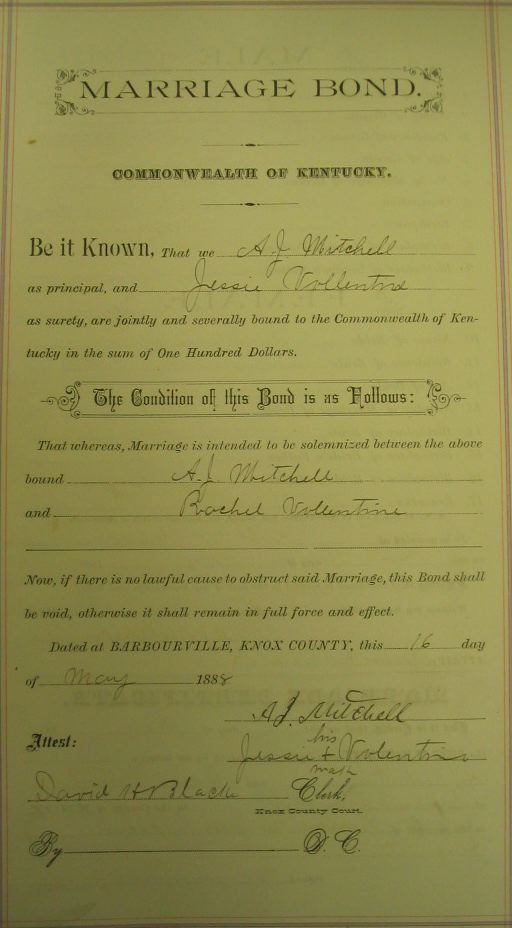 MARRIAGE BOND.
COMMONWEALTH OF KENTUCKY.
Be it Known, That we A.J. Mitchell
as principal, and Jessie Vollentine
as surety, are jointly and severally bound to the Commonwealth of Ken-
tucky in the sum of One Hundred Dollars.
The Condition of this Bond is as Follows:
That whereas, Marriage is intended to be solemnized between the above
bound A.J. Mitchell
and Rachel Vollentine
Now, if there is no lawful cause to obstruct said Marriage, this Bond shall
be void, otherwise it shall remain in full force and effect.
Dated at BARBOURVILLE, KNOX COUNTY, this 16 day
of May 1888
A.J. Mitchell
his
Attest: Jessie + Volentine
mark
David H Black Clerk,
Knox County Court.
By D. C.